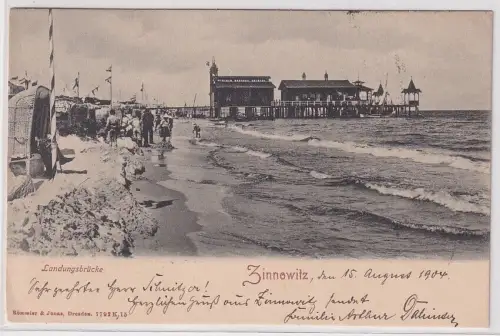 Landungsbrücke
Zinnowitz, den 15. August 1904.
Römmler & Jonas, Dresden. 1792 N.
Sehr geehrter Herr Schnitzer!
Herzlichen Gruß aus Zinnowitz sendet
Familie Arthur